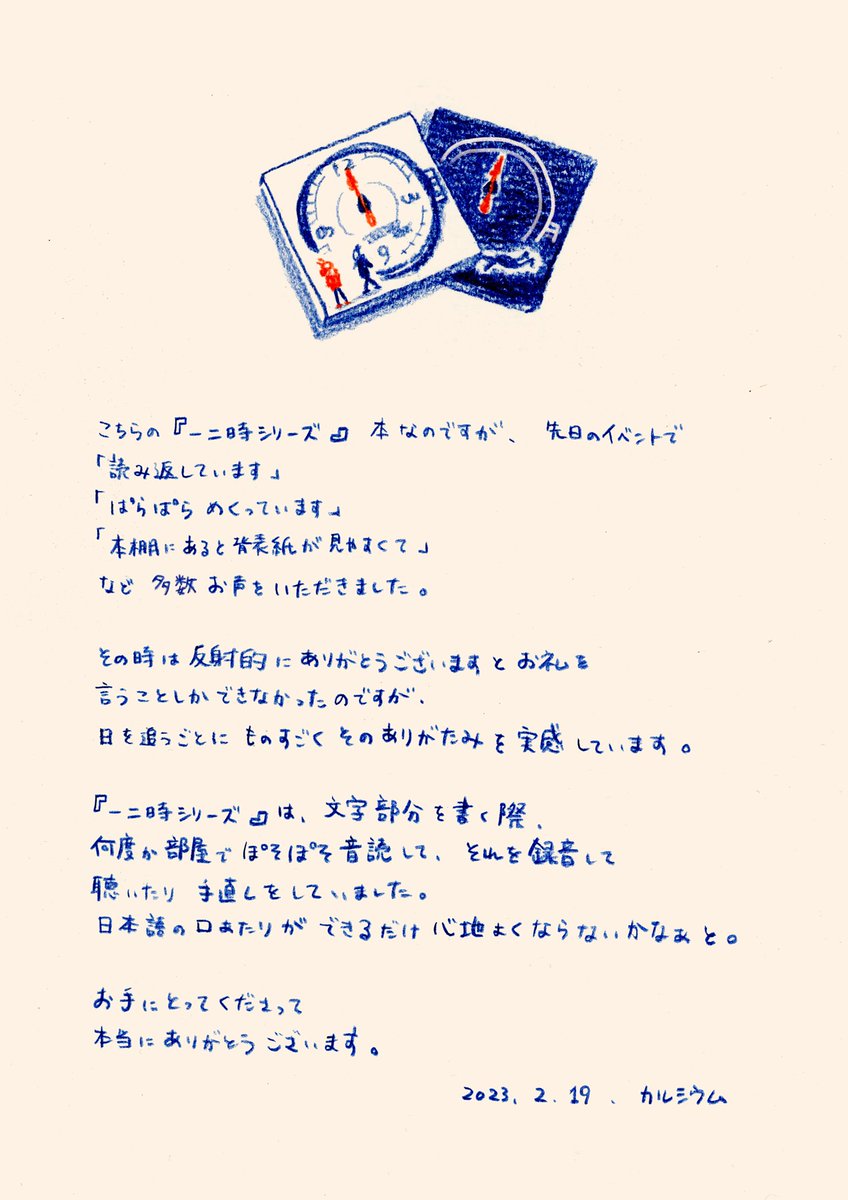 12
3
6
9
こちらの『一二時シリーズ』本なのですが、先日のイベントで
「読み返しています」
「ぱらぱら めくっています」
「本棚にあると背表紙が見やすくて」
など 多数 お声をいただきました。
その時は反射的にありがとうございますとお礼を
言うことしかできなかったのですが、
日を追うごとに ものすごく そのありがたみを実感しています。
『一二時シリーズ』は、文字部分を書く際、
何度か部屋でぽそぽそ音読して、それを録音して
聴いたり 手直しをしていました。
日本語の口あたりが できるだけ 心地よくならないかなぁと。
お手にとってくださって
本当にありがとうございます。
2023. 2. 19 . カルシウム